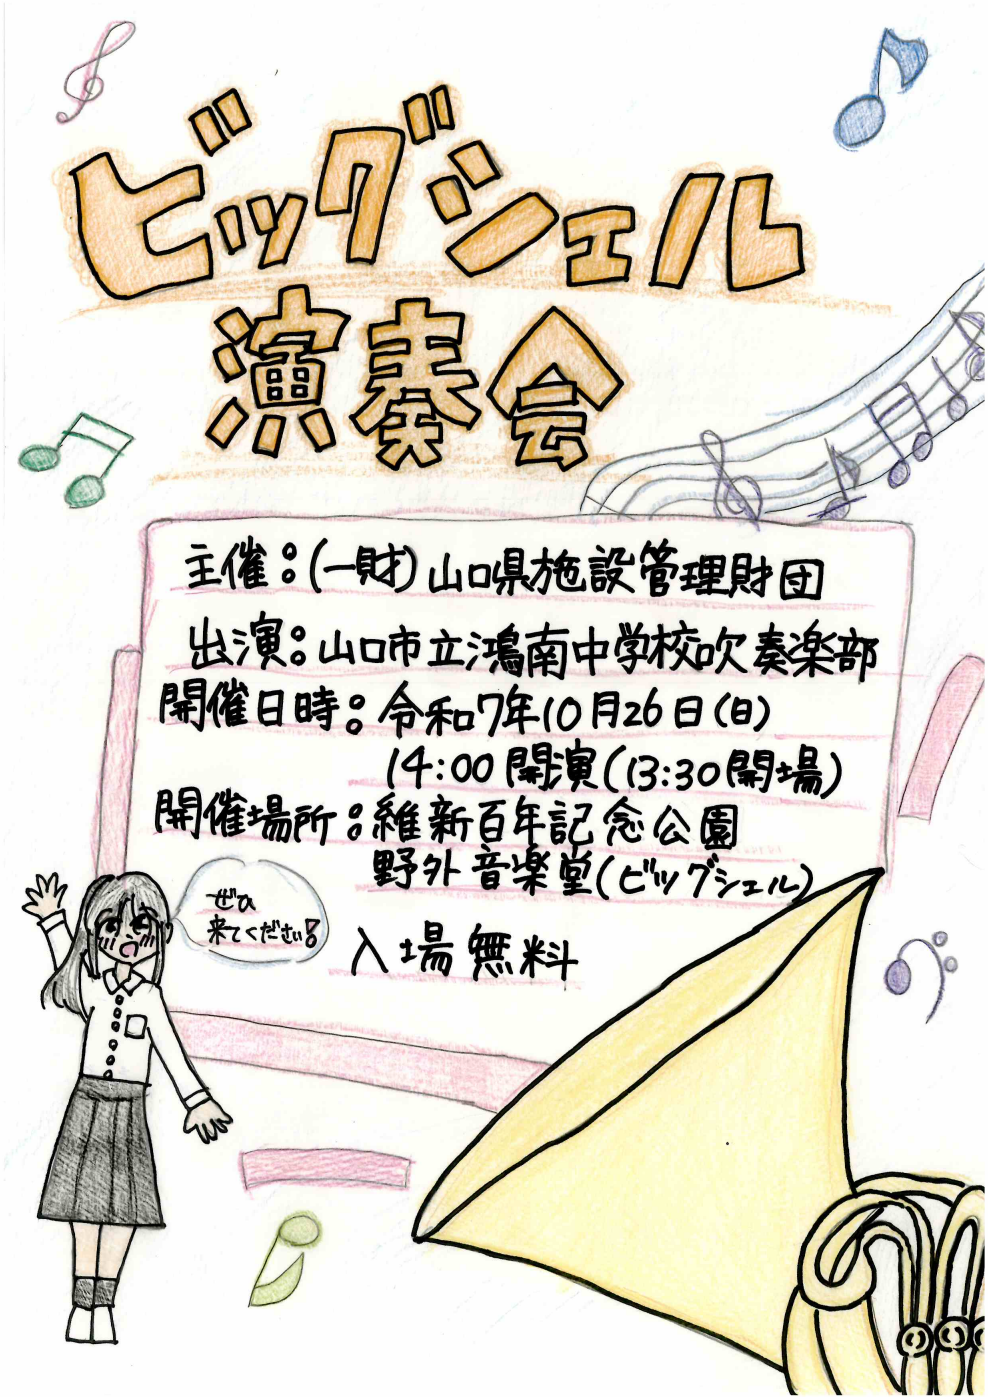 ビッグシェル
演奏会
主催：(一財)山口県施設管理財団
出演：山口市立鴻南中学校吹奏楽部
開催日時：令和7年10月26日(日)
14:00開演(13:30開場)
開催場所：維新百年記念公園
野外音楽堂(ビッグシェル)
ぜひ
来てください!
入場無料